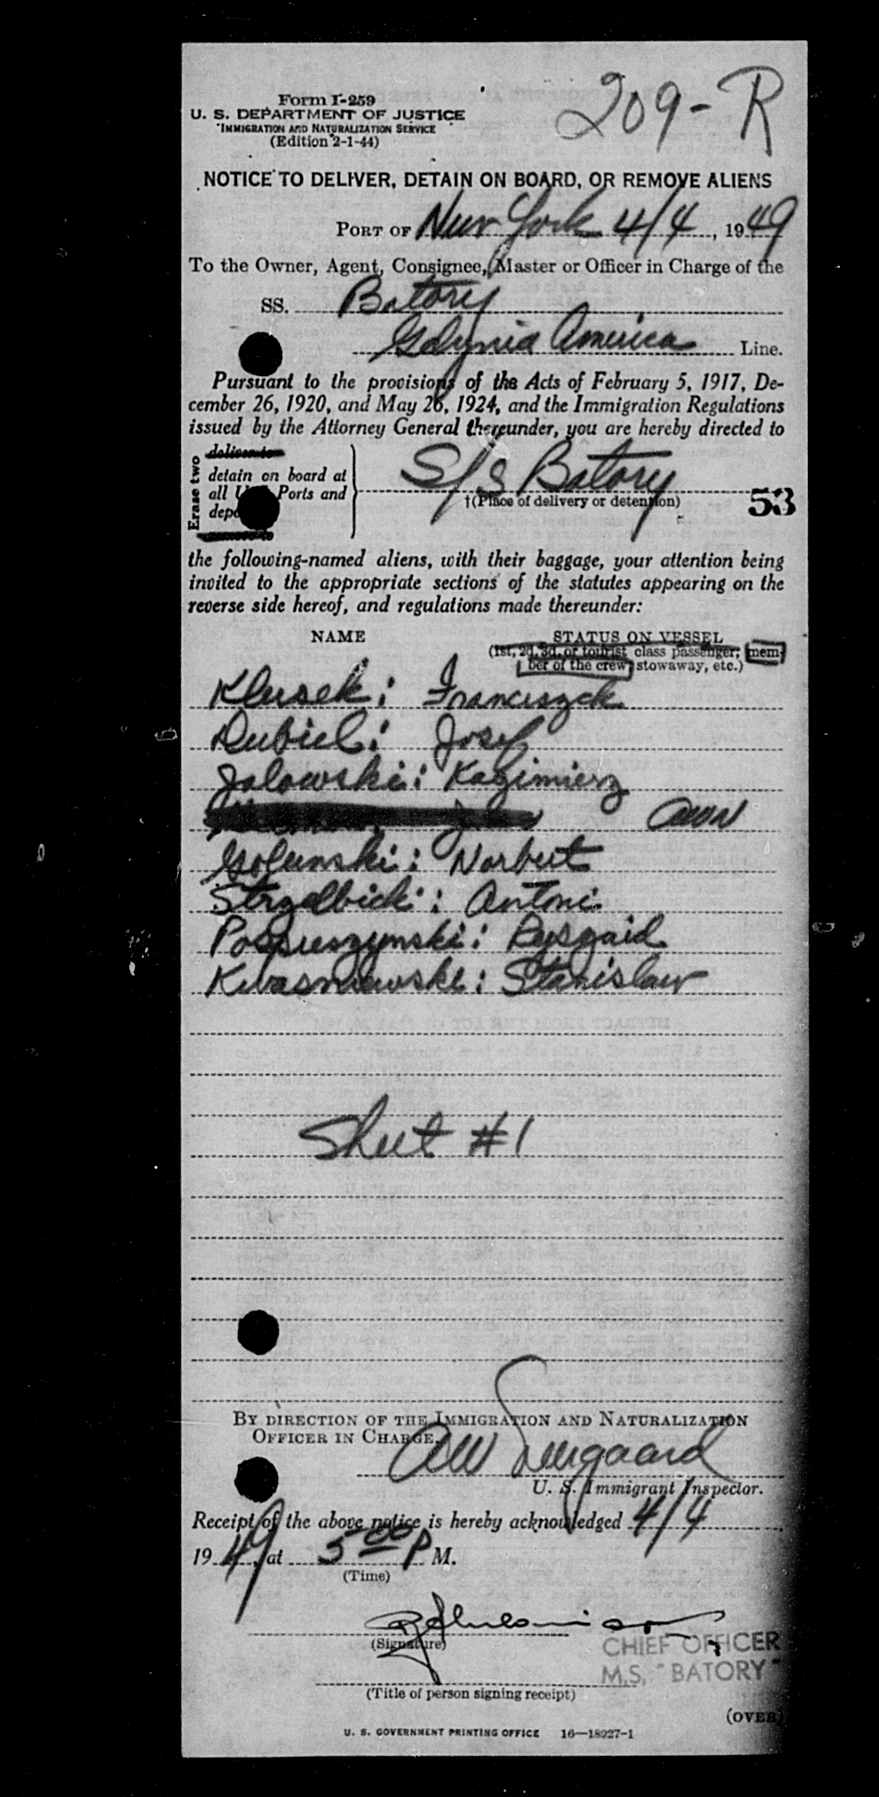 209-R
Form I-259
U. S. DEPARTMENT OF JUSTICE
IMMIGRATION AND NATURALIZATION SERVICE
(Edition 2-1-44)
NOTICE TO DELIVER, DETAIN ON BOARD, OR REMOVE ALIENS
PORT OF New York 4/4, 1949
To the Owner, Agent, Consignee, Master or Officer in Charge of the
SS. Batory
Gdynia America Line.
Pursuant to the provisions of the Acts of February 5, 1917, De-
cember 26, 1920, and May 26, 1924, and the Immigration Regulations
issued by the Attorney General thereunder, you are hereby directed to
Erase two
detain on board at
all Ports and
S/S Batory
†(Place of delivery or detention)
53
the following-named aliens, with their baggage, your attention being
invited to the appropriate sections of the statutes appearing on the
reverse side hereof, and regulations made thereunder:
NAME STATUS ON VESSEL
(1st, 2d, 3d, or tourist class passenger; mem-
ber of the crew, stowaway, etc.)
Klusek: Franciszek
Dubiel: Josef
Jalowski: Kazimierz
AWN
Golunski: Norbert
Strzelbicki: Antoni
Pospieszynski: Ryszard
Kwasniewski: Stanislaw
Sheet #1
BY DIRECTION OF THE IMMIGRATION AND NATURALIZATION
OFFICER IN CHARGE.
U. S. Immigrant Inspector.
Receipt of the above notice is hereby acknowledged 4/4
1949, at 5 00 P M.
(Time)
(Signature)
CHIEF OFFICER
M.S. "BATORY"
(Title of person signing receipt)
(OVER)
U. S. GOVERNMENT PRINTING OFFICE 16—18927-1